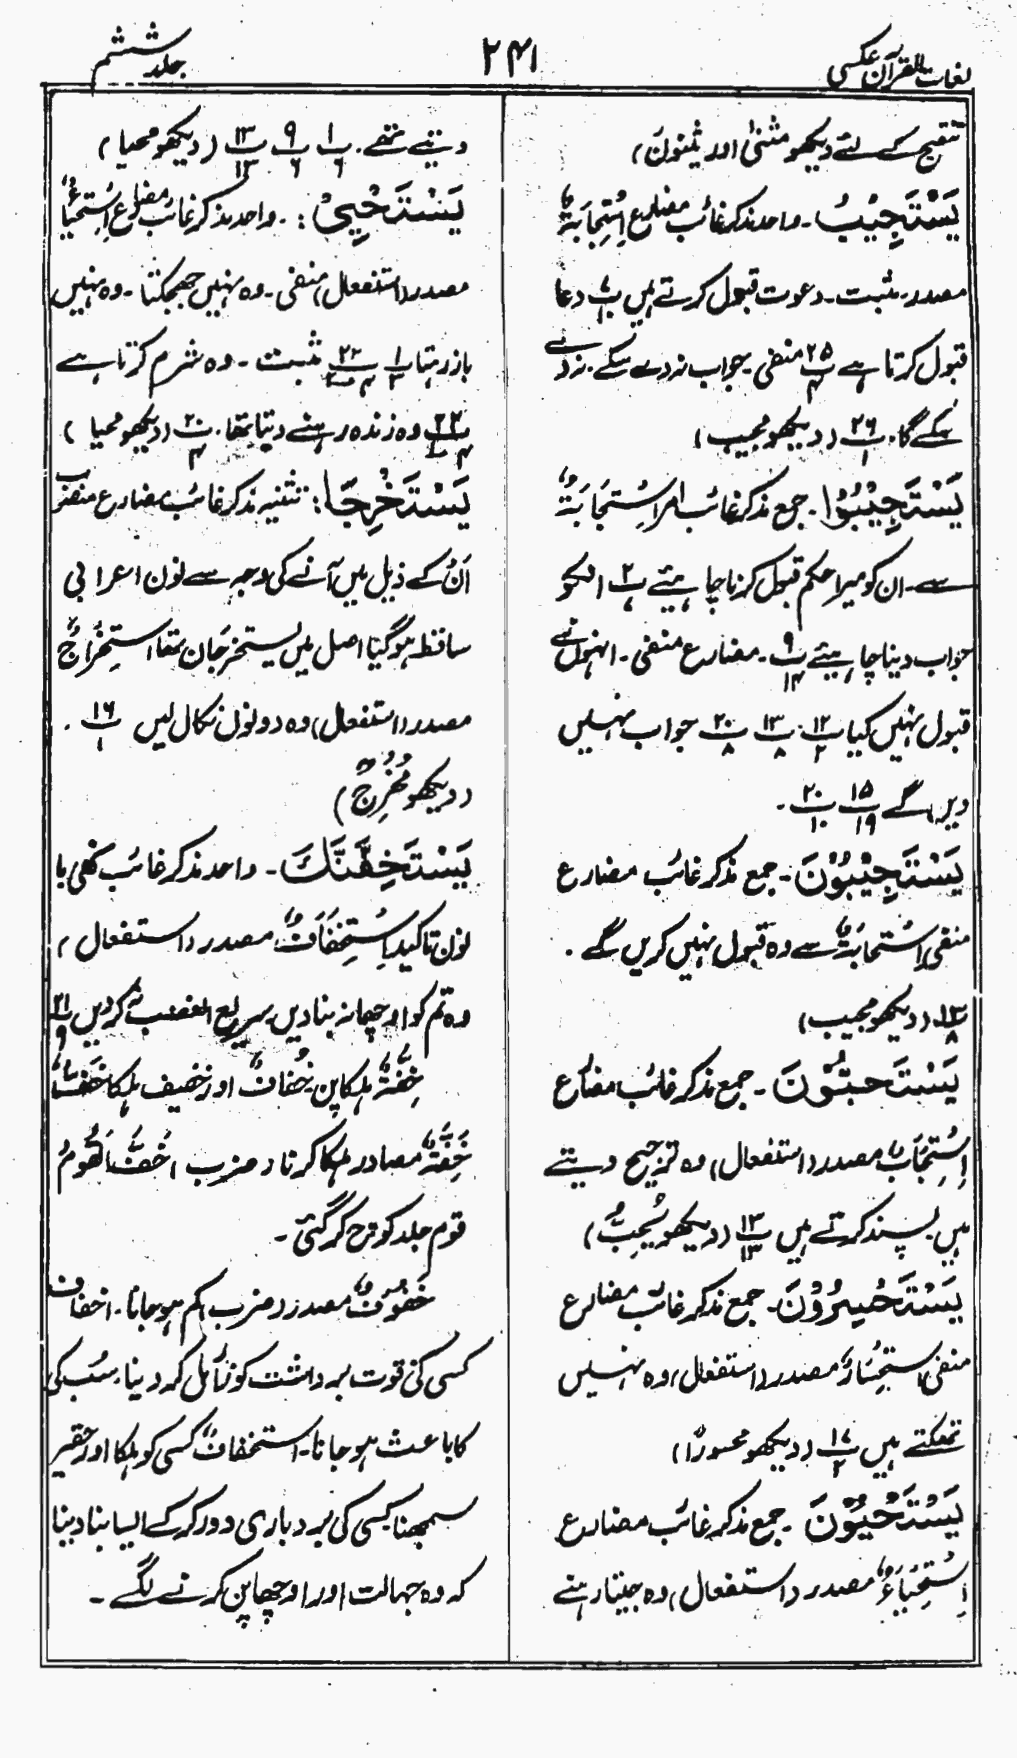 لغات القرآن عکسی
۲۴۱
جلد ششم
تنقیح کے لئے دیکھو مثنیٰ اور یثنون)
یَسْتَجِیْبُ ۔ واحد مذکر غائب مضارع اِسْتِجَابَۃٌ
مصدر۔ مثبت۔ دعوت قبول کرتے ہیں دعا
قبول کرتا ہے ۲۵/۴ منفی۔ جواب نہ دے سکے۔ نہ دے
سکے گا۔ ۲۶/۱ (دیکھو مجیب)
یَسْتَجِیْبُوْا ۔ جمع مذکر غائب امر اِسْتِجَابَۃٌ
سے۔ ان کو میرا حکم قبول کرنا چاہیئے ۲ انکو
جواب دینا چاہیئے ۹/۱۴ ۔ مضارع منفی۔ انہوں نے
قبول نہیں کیا ۱۲/۲ ۱۳/۸ ۲۰/۸ جواب نہیں
دیں گے ۱۵/۱۹ ۲۰/۱۰ ۔
یَسْتَجِیْبُوْنَ ۔ جمع مذکر غائب مضارع
منفی اِسْتِجَابَۃٌ سے وہ قبول نہیں کریں گے ۔
۱۳/۸ (دیکھو مجیب)
یَسْتَحِبُّوْنَ ۔ جمع مذکر غائب مضارع
اِسْتِحْبَابٌ مصدر (استفعال) وہ ترجیح دیتے
ہیں پسند کرتے ہیں ۱۳/۱۳ (دیکھو یُحِبُّ)
یَسْتَحْسِرُوْنَ ۔ جمع مذکر غائب مضارع
منفی اِسْتِحْسَارٌ مصدر (استفعال) وہ نہیں
تھکتے ہیں ۱۷/۲ (دیکھو محسورًا)
یَسْتَحْیُوْنَ ۔ جمع مذکر غائب مضارع
اِسْتِحْیَاءٌ مصدر (استفعال) وہ جیتا رہنے
دیتے تھے۔ ۱/۶ ۹/۶ ۱۳/۱۳ (دیکھو محیا)
یَسْتَحْیِیْ :۔ واحد مذکر غائب مضارع اِسْتِحْیَاءٌ
مصدر (استفعال) منفی۔ وہ نہیں جھجکتا۔ وہ نہیں
باز رہتا ۱/۳ ۲۲/۴ مثبت ۔ وہ شرم کرتا ہے
۲۲/۴ وہ زندہ رہنے دیتا تھا۔ ۲۰/۴ (دیکھو محیا)
یَسْتَخْرِجَا : تثنیہ مذکر غائب مضارع منصوب
اَنْ کے ذیل میں آنے کی وجہ سے نون اعرابی
ساقط ہو گیا اصل میں یستخرجان تھا اِسْتِخْرَاجٌ
مصدر (استفعال) وہ دونوں نکال لیں ۱۶/۱ ۔
(دیکھو مُخْرِجٌ)
یَسْتَخِفَّنَّکَ ۔ واحد مذکر غائب نھی با
نون تاکید اِسْتِخْفَافٌ مصدر (استفعال)
وہ تم کو اوچھا نہ بنا دیں سریع الغضب نہ کر دیں ۲۱/۹
خِفَّۃٌ ہلکا پن۔ خُفَافٌ اور خفیف ہلکا خَفَّ
خِفَّۃٌ مصادر ہلکا کرنا (ضرب) اَخَفَّ الْقَوْمُ
قوم جلد کوچ کر گئی ۔
خُفُوْفٌ مصدر (ضرب) کم ہو جانا۔ اخفاف
کسی کی قوت برداشت کو زائل کر دینا۔ سبکی
کا باعث ہو جانا۔ استخفافٌ کسی کو ہلکا اور حقیر
سمجھنا کسی کی بردباری دور کر کے ایسا بنا دینا
کہ وہ جہالت اور اوچھاپن کرنے لگے ۔